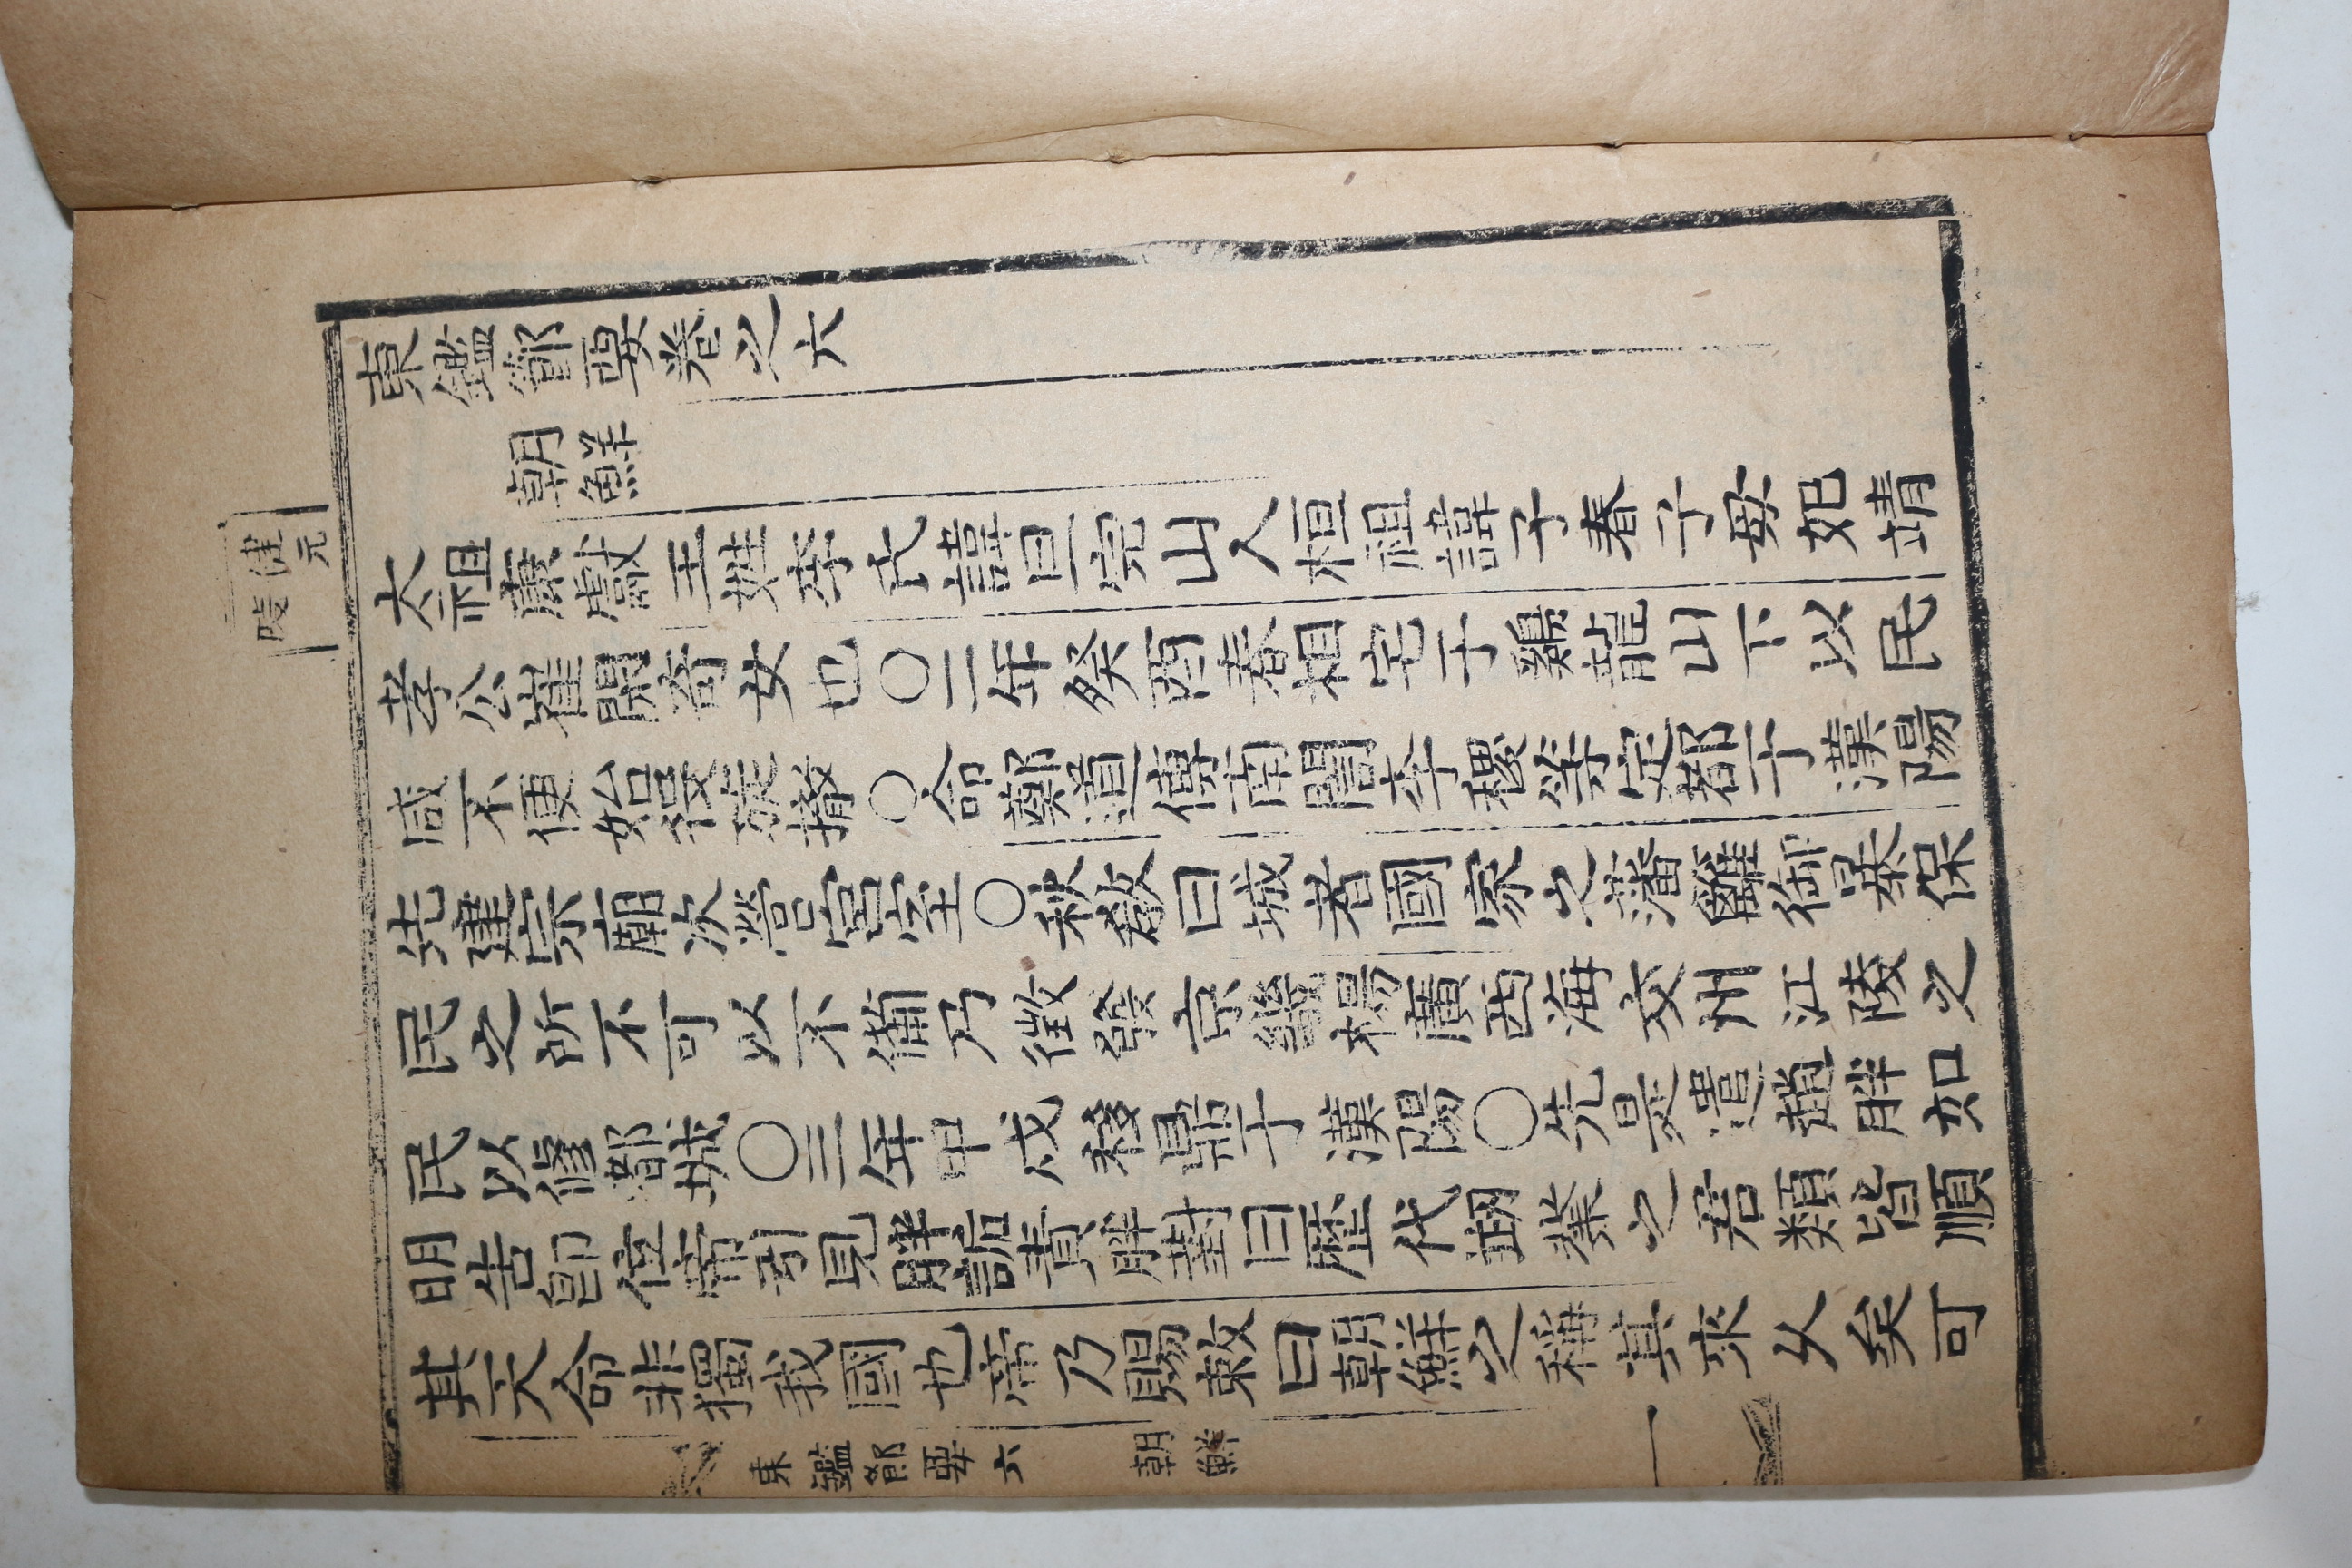 東鑑節要卷之六
朝鮮
健元
陵
太祖康獻王姓李氏諱旦完山人桓祖諱子春子母妃靖
孝公崔閑奇女也○二年癸酉春相宅于鷄龍山下以民
咸不便始役旋撤○命鄭道傳南誾李稷等定都于漢陽
先建宗廟次營宮室○秋敎曰城者國家之藩籬御暴保
民之所不可以不備乃徵發京畿楊廣西海交州江陵之
民以修都城○三年甲戌移鼎于漢陽○先是遣趙胖如
明告卽位帝引見胖詰責胖對曰歷代刱業之君類皆順
其天命非獨我國也帝乃賜敕曰朝鮮之稱其來久矣可
東鑑節要六 朝鮮 一